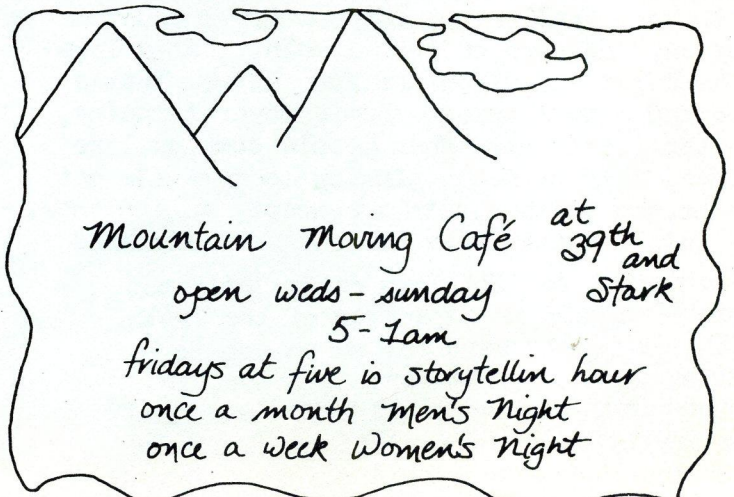 Mountain Moving Café at 39th and Stark
open weds - sunday
5 - 1am
fridays at five is storytellin hour
once a month Men's Night
once a week Women's Night